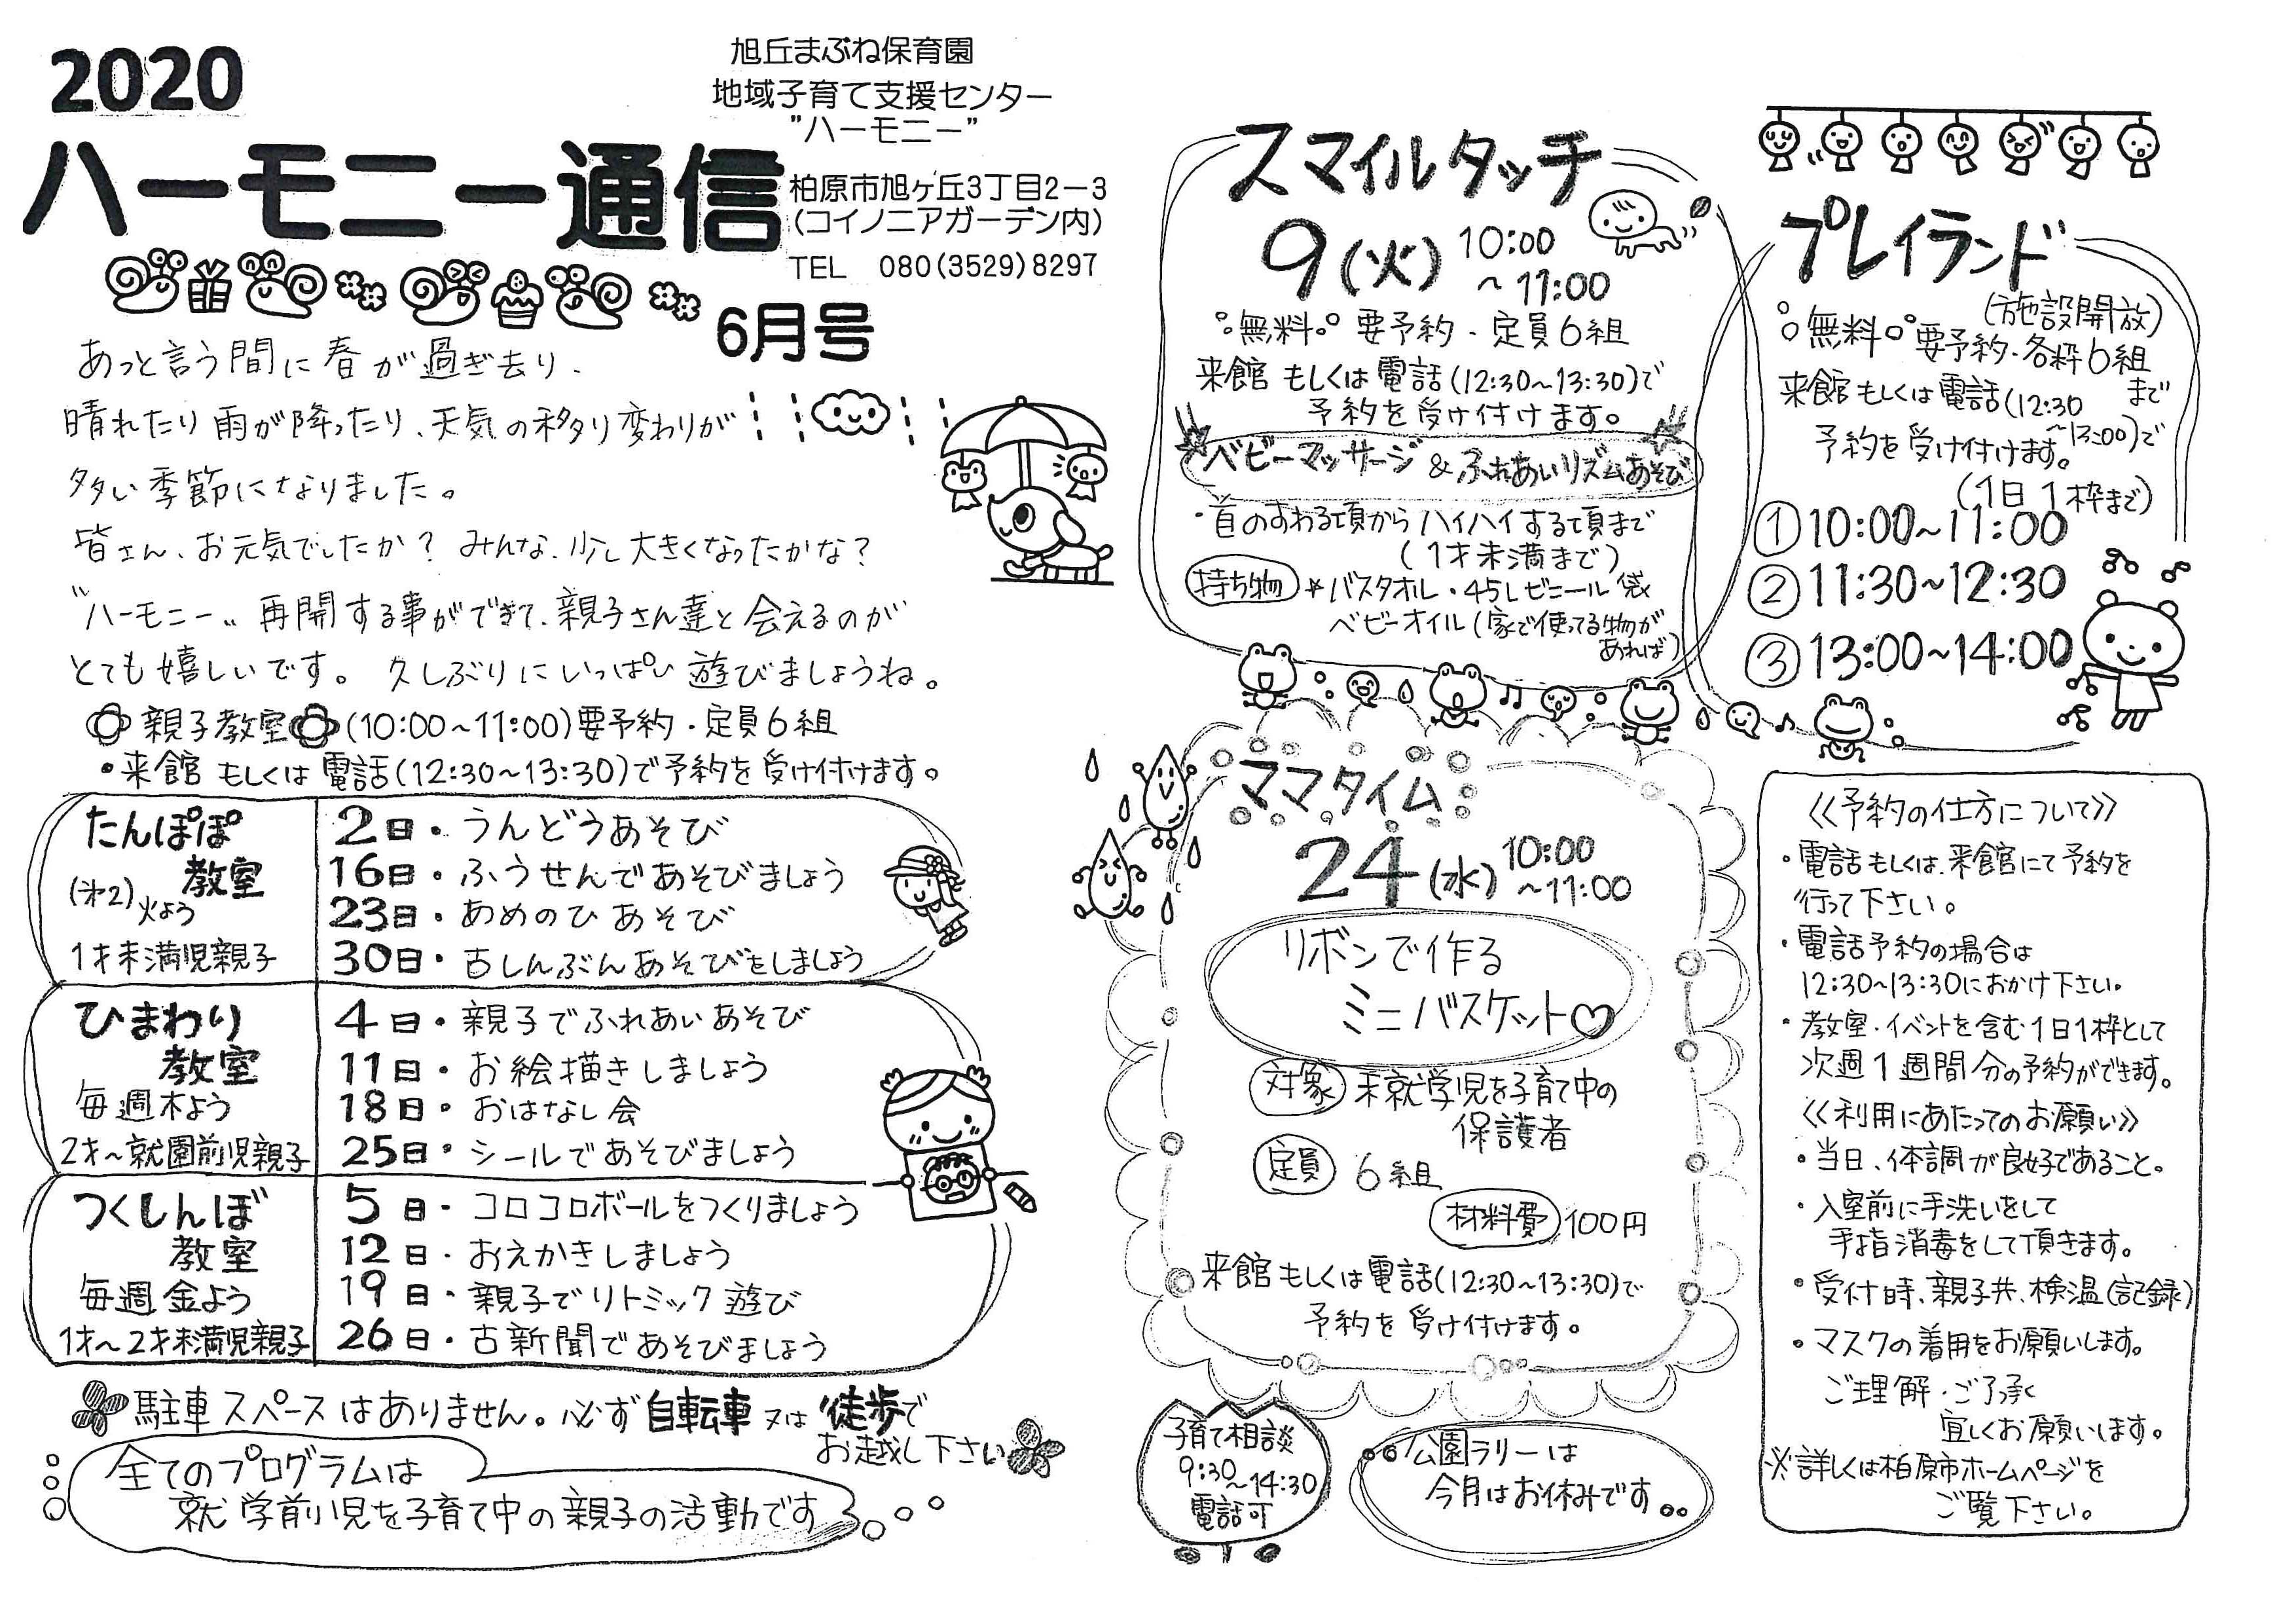 2020
ハーモニー通信
旭丘まぶね保育園
地域子育て支援センター
"ハーモニー"
柏原市旭ヶ丘3丁目2－3
(コイノニアガーデン内)
TEL 080(3529)8297
6月号
あっと言う間に春が過ぎ去り、
晴れたり雨が降ったり、天気の移り変わりが
多い季節になりました。
皆さん、お元気でしたか？ みんな、少し大きくなったかな？
"ハーモニー"再開する事ができて、親子さん達と会えるのが
とても嬉しいです。 久しぶりにいっぱい遊びましょうね。
親子教室(10:00~11:00)要予約・定員6組
・来館もしくは電話(12:30~13:30)で予約を受け付けます。
たんぽぽ
教室
(第2)火よう
1才未満児親子
2日・うんどうあそび
16日・ふうせんであそびましょう
23日・あめのひあそび
30日・古しんぶんあそびをしましょう
ひまわり
教室
毎週木よう
2才~就園前児親子
4日・親子でふれあいあそび
11日・お絵描きしましょう
18日・おはなし会
25日・シールであそびましょう
つくしんぼ
教室
毎週金よう
1才~2才未満児親子
5日・コロコロボールをつくりましょう
12日・おえかきしましょう
19日・親子でリトミック遊び
26日・古新聞であそびましょう
駐車スペースはありません。必ず自転車又は徒歩で
お越し下さい
全てのプログラムは
就学前児を子育て中の親子の活動です
スマイルタッチ
9(火) 10:00
~11:00
無料 要予約・定員6組
来館もしくは電話(12:30~13:30)で
予約を受け付けます。
ベビーマッサージ&ふれあいリズムあそび
・首のすわる頃からハイハイする頃まで
(1才未満まで)
持ち物 *バスタオル・45Lビニール袋
ベビーオイル(家で使ってる物が
あれば)
プレイランド
(施設開放)
無料 要予約・各枠6組
まで
来館もしくは電話(12:30
~13:00)で
予約を受け付けます。
(1日1枠まで)
①10:00~11:00
②11:30~12:30
③13:00~14:00
ママタイム
24(水) 10:00
~11:00
リボンで作る
ミニバスケット♡
対象 未就学児を子育て中の
保護者
定員 6組
材料費 100円
来館もしくは電話(12:30~13:30)で
予約を受け付けます。
子育て相談
9:30~14:30
電話可
公園ラリーは
今月はお休みです
《予約の仕方について》
・電話もしくは、来館にて予約を
行って下さい。
・電話予約の場合は
12:30~13:30におかけ下さい。
・教室・イベントを含む1日1枠として
次週1週間分の予約ができます。
《利用にあたってのお願い》
・当日、体調が良好であること。
・入室前に手洗いをして
手指消毒をして頂きます。
・受付時、親子共、検温(記録)
・マスクの着用をお願いします。
ご理解・ご了承
宜しくお願いします。
※詳しくは柏原市ホームページを
ご覧下さい。